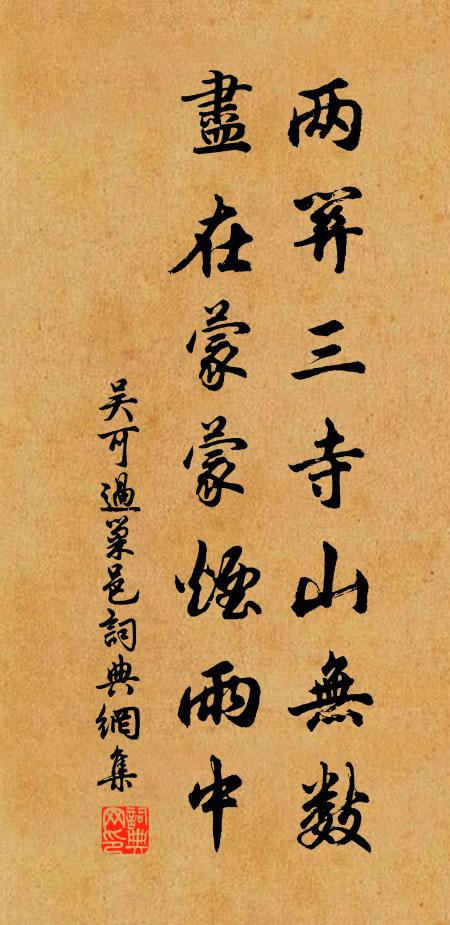 两笄三寺山無數
盡在蒙蒙煙雨中
吴可過巢邑詞典網集
詞典网印